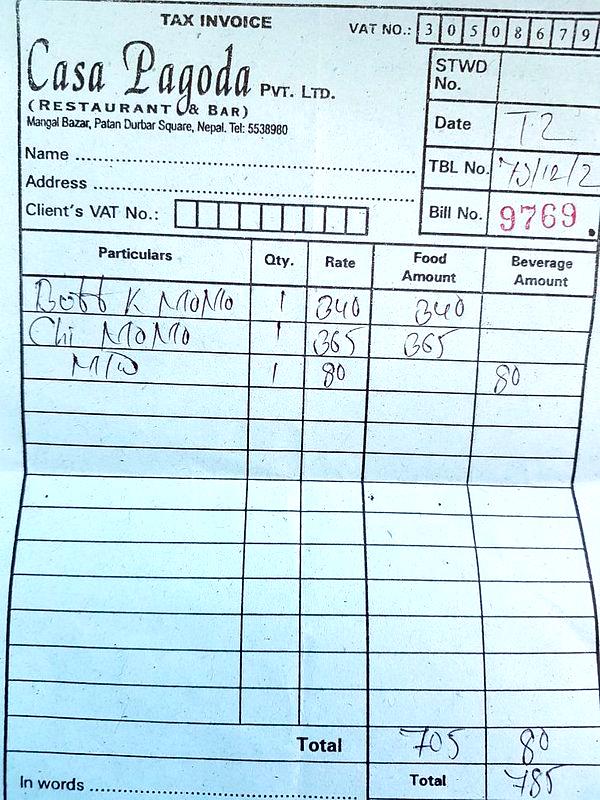 TAX INVOICE
VAT NO.: 3 0 5 0 8 6 7 9
Casa Pagoda PVT. LTD.
(RESTAURANT & BAR)
Mangal Bazar, Patan Durbar Square, Nepal. Tel: 5538980
STWD No.
Date T2
Name
TBL No.
Address
Client's VAT No.:
Bill No. 9769.
Particulars Qty. Rate Food Amount Beverage Amount
Buff K MoMo 1 340 340
Chi MoMo 1 365 365
M/W 1 80 80
Total 705 80
Total 785
In words